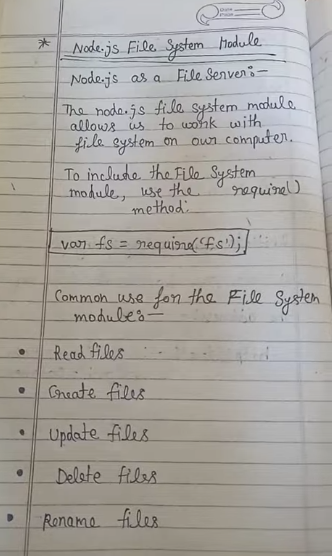 * Node.js File System Module
Node.js as a File Server:-
The node.js file system module
allows us to work with
file system on our computer.
To include the File System
module, use the require()
method:
var fs = require('fs');
Common use for the File System
modules:-
• Read files
• Create files
• Update files
• Delete files
• Rename files